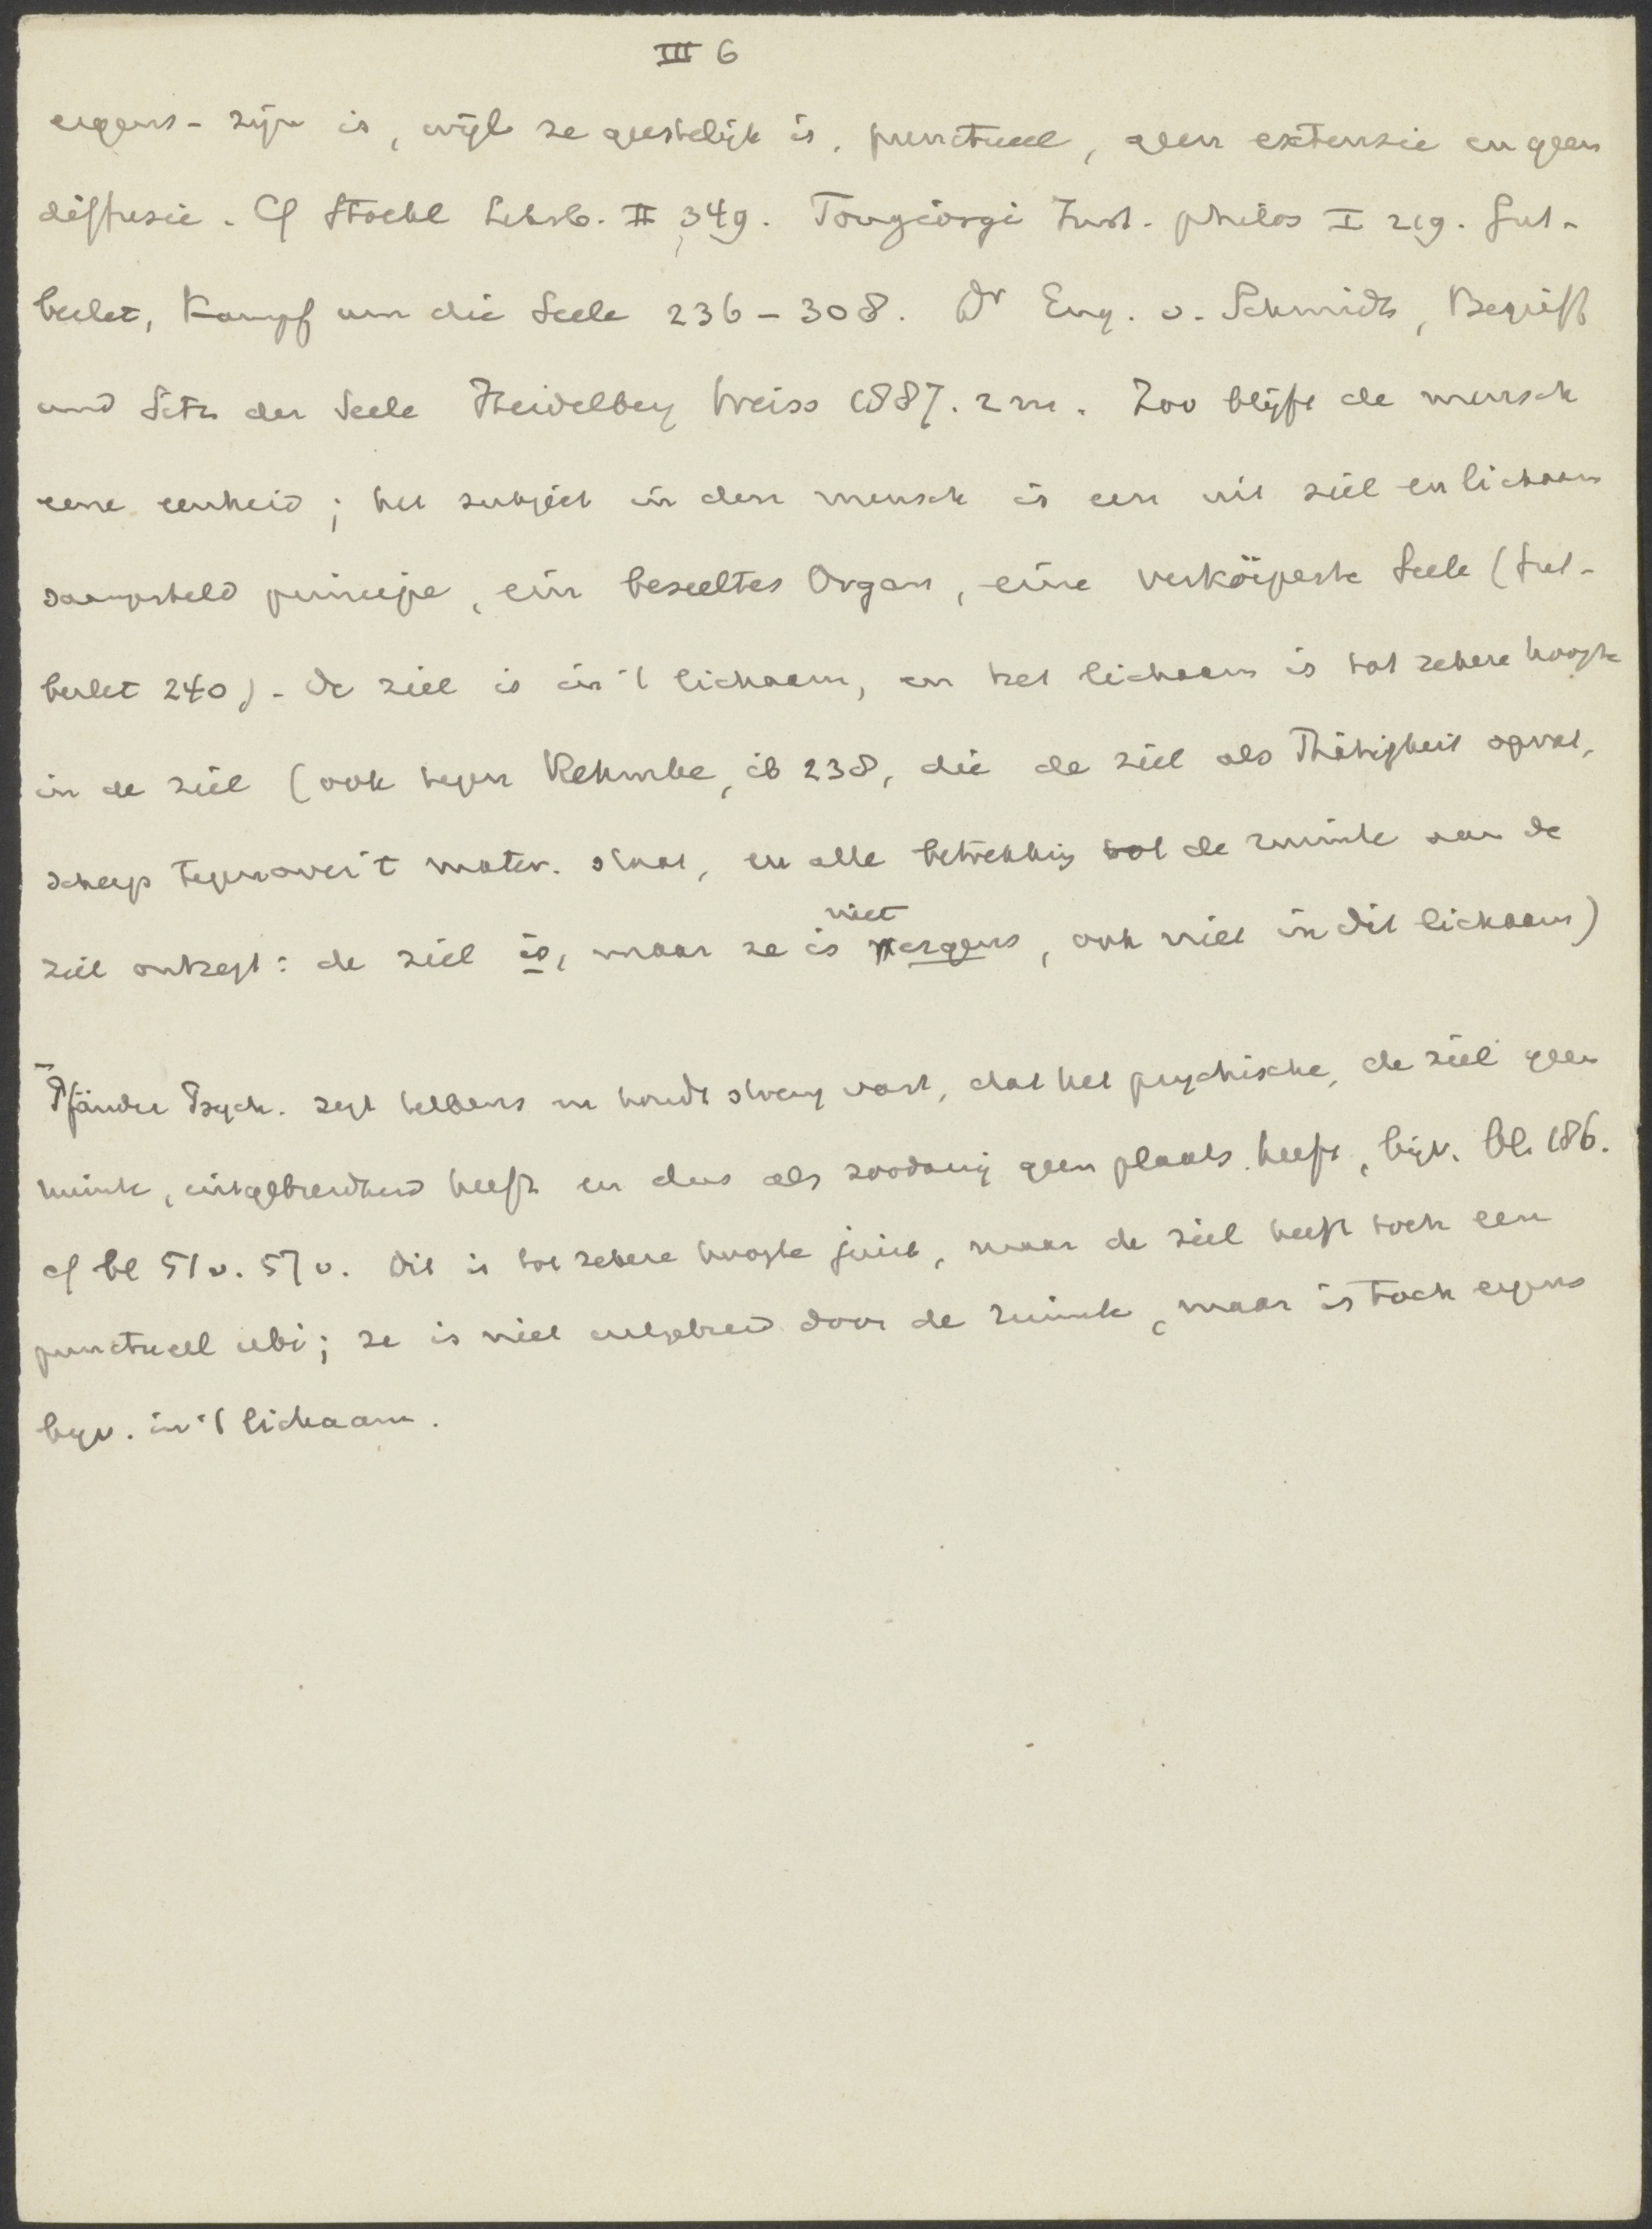 III 6
ergens - zijn is, wijl ze geestelijk is, punctueel, geen extensie en geen
diffusie. Cf Stoekl Lehrb. II 349. Tongiorgi Inst. philos I 219. Gut-
berlet, Kampf um die Seele 236 - 308. Dr Eug. v. Schmidt, Begriff
und Sitz der Seele Heidelberg Weiss 1887. Zoo blijft de mensch
eene eenheid; het subject in den mensch is een uit ziel en lichaam
saamgesteld principe, ein beseeltes Organ, eine verkörperte Seele (Gut-
berlet 240). De ziel is in 't lichaam, en het lichaam is tot zekere hoogte
in de ziel (ook tegen Rehmke, ib 238, die de ziel als Thätigkeit opvat,
scherp tegenover 't mater. staat, en alle betrekking tot de ruimte aan de
ziel ontzegt: de ziel is, maar ze is niet ergens, ook niet in dit lichaam)
Pfänder Psych. zegt telkens en houdt streng vast, dat het psychische, de ziel geen
ruimte, uitgebreidheid heeft en dus als zoodanig geen plaats heeft, bijv. bl. 186.
cf bl 51v. 57v. Dit is tot zekere hoogte juist, maar de ziel heeft toch een
punctueel ubi; ze is niet uitgebreid door de ruimte, maar is toch ergens
bijv. in 't lichaam.